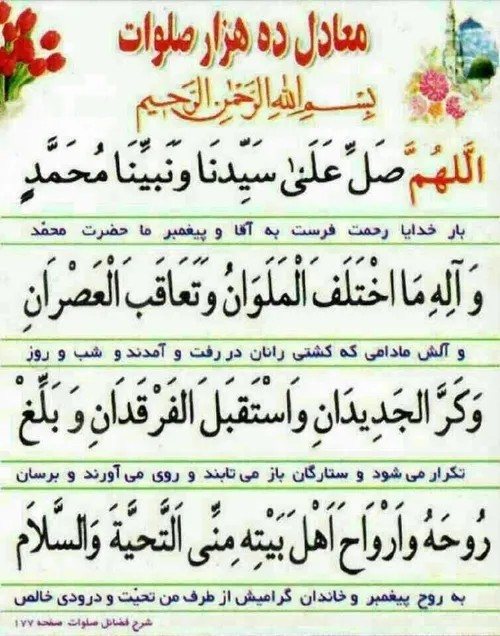 معادل ده هزار صلوات
بِسْمِ اللهِ الرَّحْمٰنِ الرَّحِيمِ
اَللّٰهُمَّ صَلِّ عَلَىٰ سَيِّدِنَا وَنَبِيِّنَا مُحَمَّدٍ
بار خدایا رحمت فرست به آقا و پیغمبر ما حضرت محمّد
وَ آلِهِ مَا اخْتَلَفَ الْمَلَوَانُ وَتَعَاقَبَ الْعَصْرَانِ
و آلش مادامی که کشتی رانان در رفت و آمدند و شب و روز
وَكَرَّ الْجَدِيدَانِ وَاسْتَقْبَلَ الْفَرْقَدَانِ وَ بَلِّغْ
تکرار می شود و ستارگان باز می تابند و روی می آورند و برسان
رُوحَهُ وَاَرْوَاحَ اَهْلِ بَيْتِهِ مِنِّى التَّحِيَّةَ وَالسَّلَام
به روح پیغمبر و خاندان گرامیش از طرف من تحیّت و درودی خالص
شرح فضائل صلوات صفحه ۱۷۷